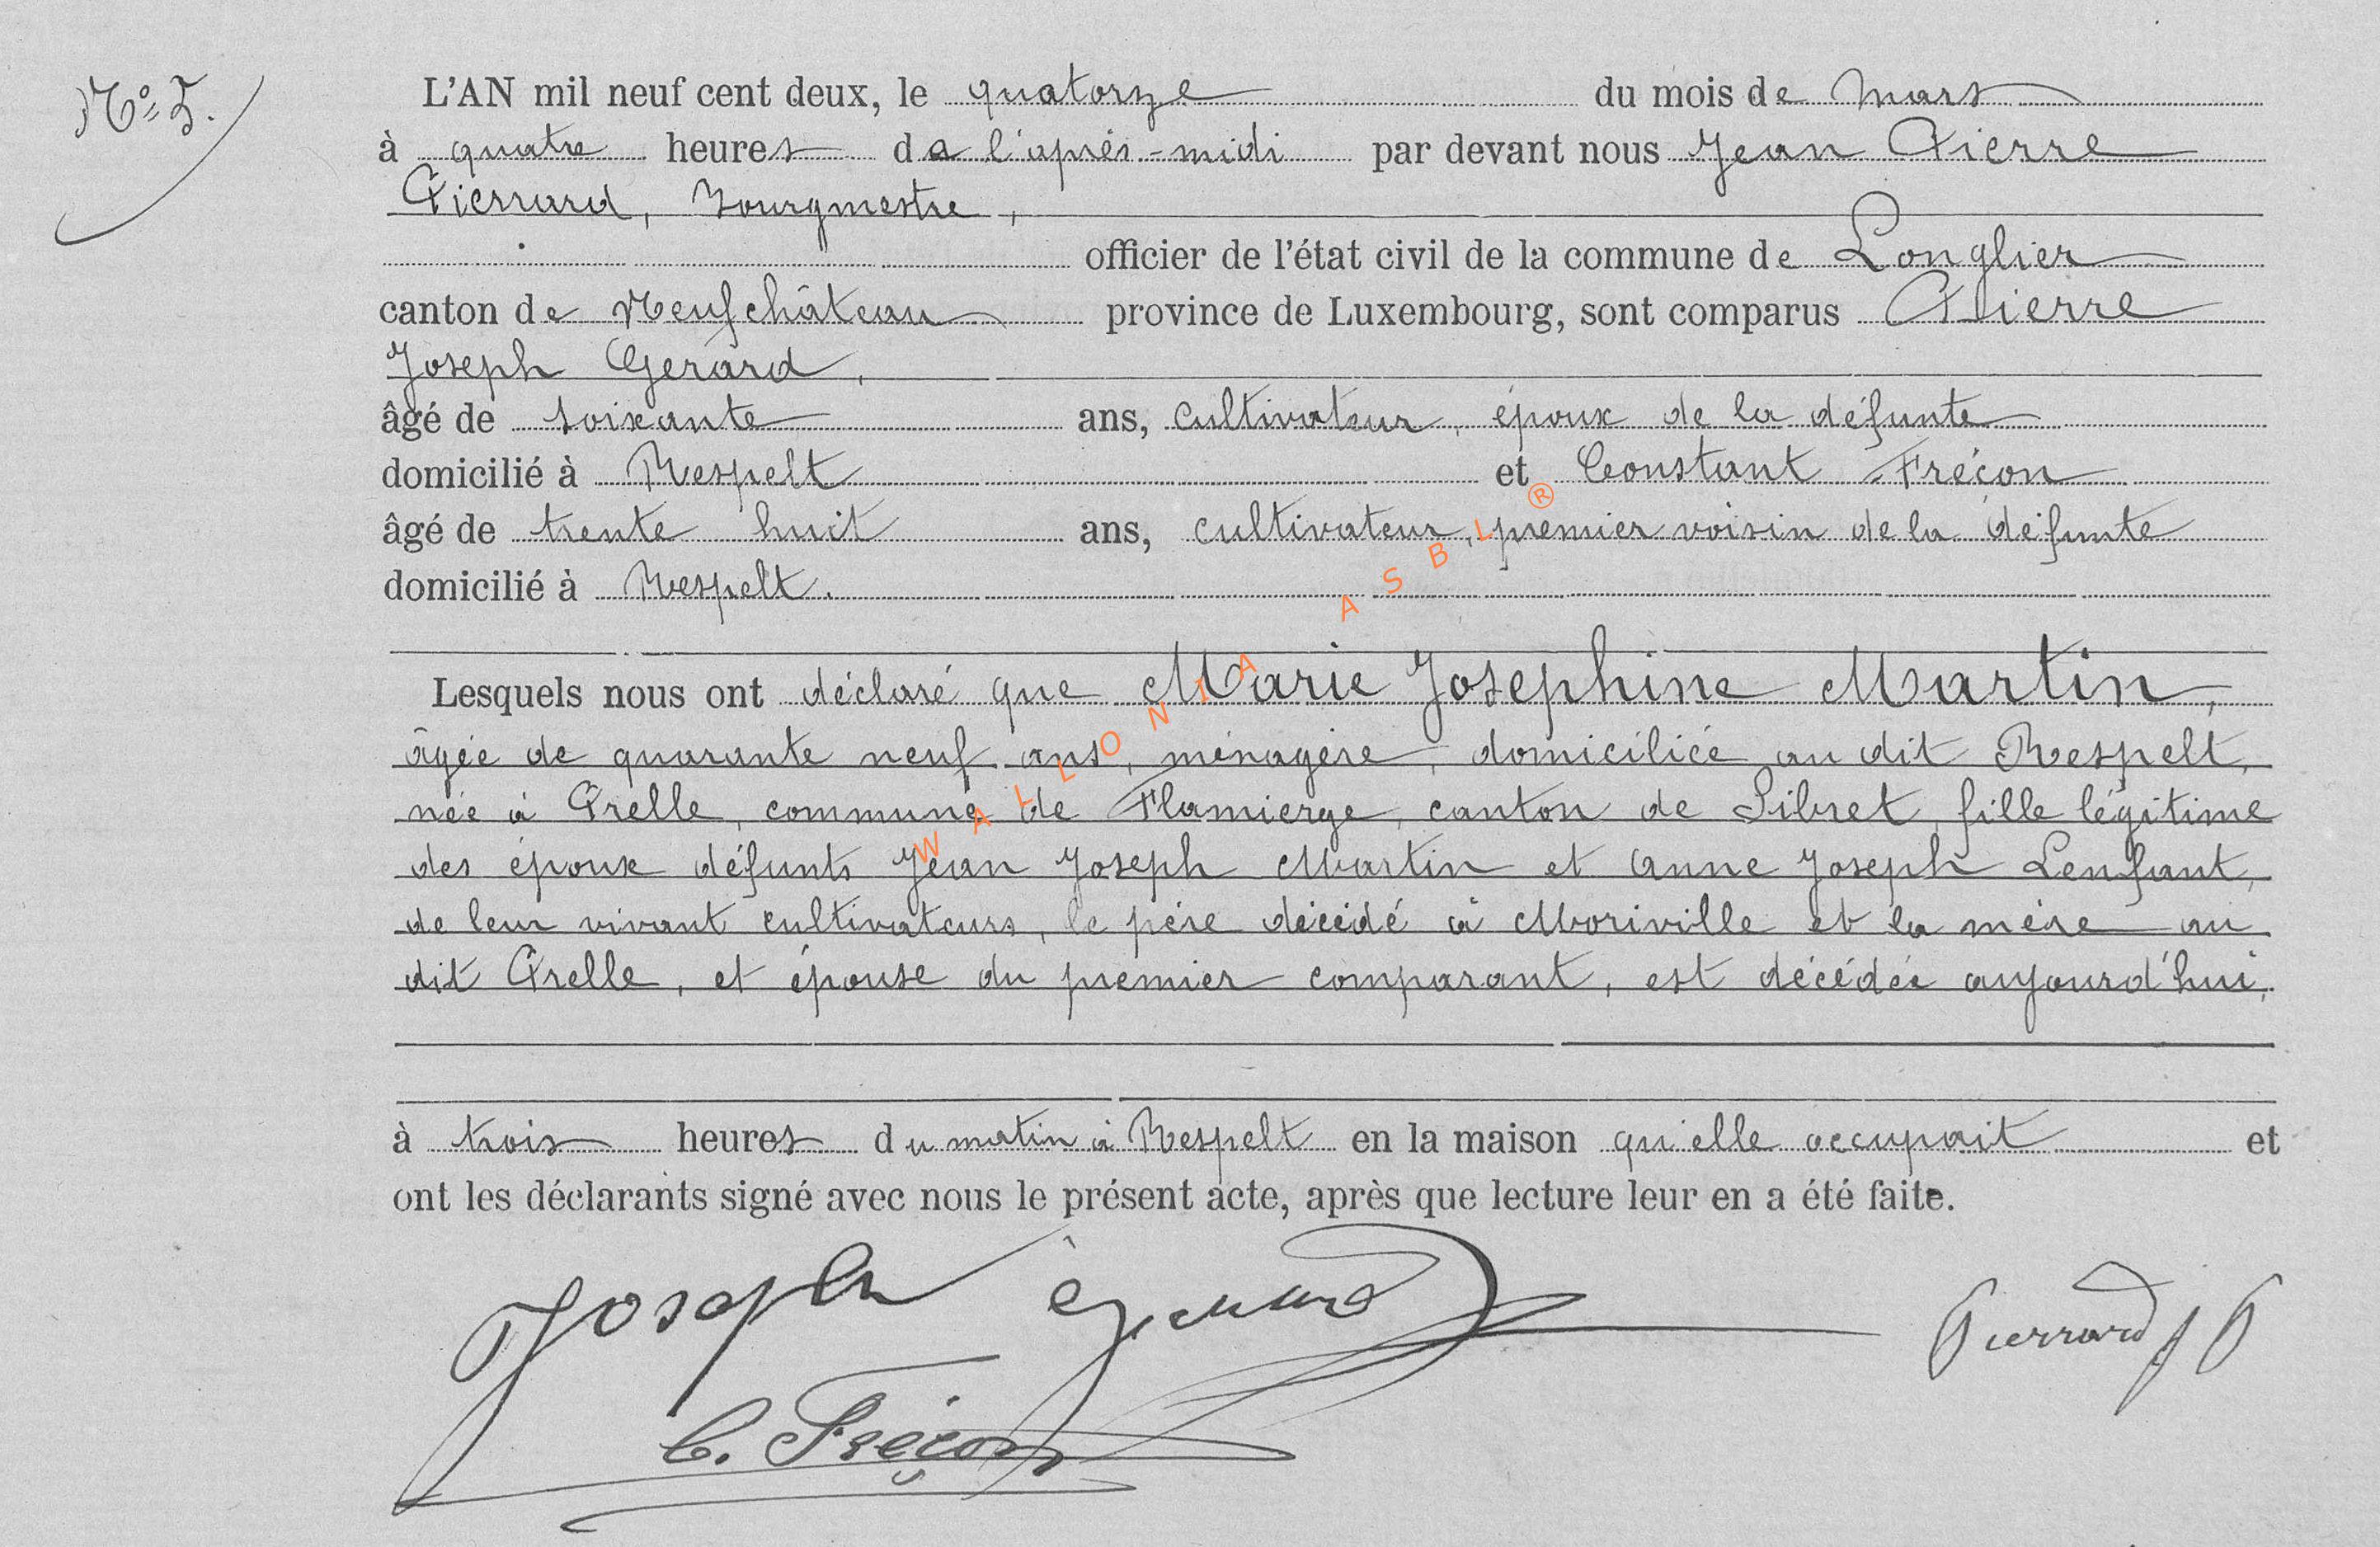 Nº 5.
L'AN mil neuf cent deux, le quatorze du mois de mars
à quatre heures de l'après-midi par devant nous Jean Pierre
Pierrard, Bourgmestre,
officier de l'état civil de la commune de Longlier
canton de Neufchâteau province de Luxembourg, sont comparus Pierre
Joseph Gerard,
âgé de soixante ans, cultivateur, époux de la défunte
domicilié à Respelt et Constant Freçon
âgé de trente huit ans, cultivateur, premier voisin de la défunte
domicilié à Respelt.
Lesquels nous ont déclaré que Marie Josephine Martin,
âgée de quarante neuf ans, ménagère, domiciliée au dit Respelt,
née à Prelle, commune de Flamierge, canton de Sibret, fille légitime
des époux défunts Jean Joseph Martin et Anne Joseph Lenfant,
de leur vivant cultivateurs, le père décédé à Moriville et la mère au
dit Prelle, et épouse du premier comparant, est décédée aujourd'hui,
à trois heures du matin à Respelt en la maison qu'elle occupait et
ont les déclarants signé avec nous le présent acte, après que lecture leur en a été faite.
Joseph Gerard Pierrard J P
C. Freçon
WALLONIA ASBL ®